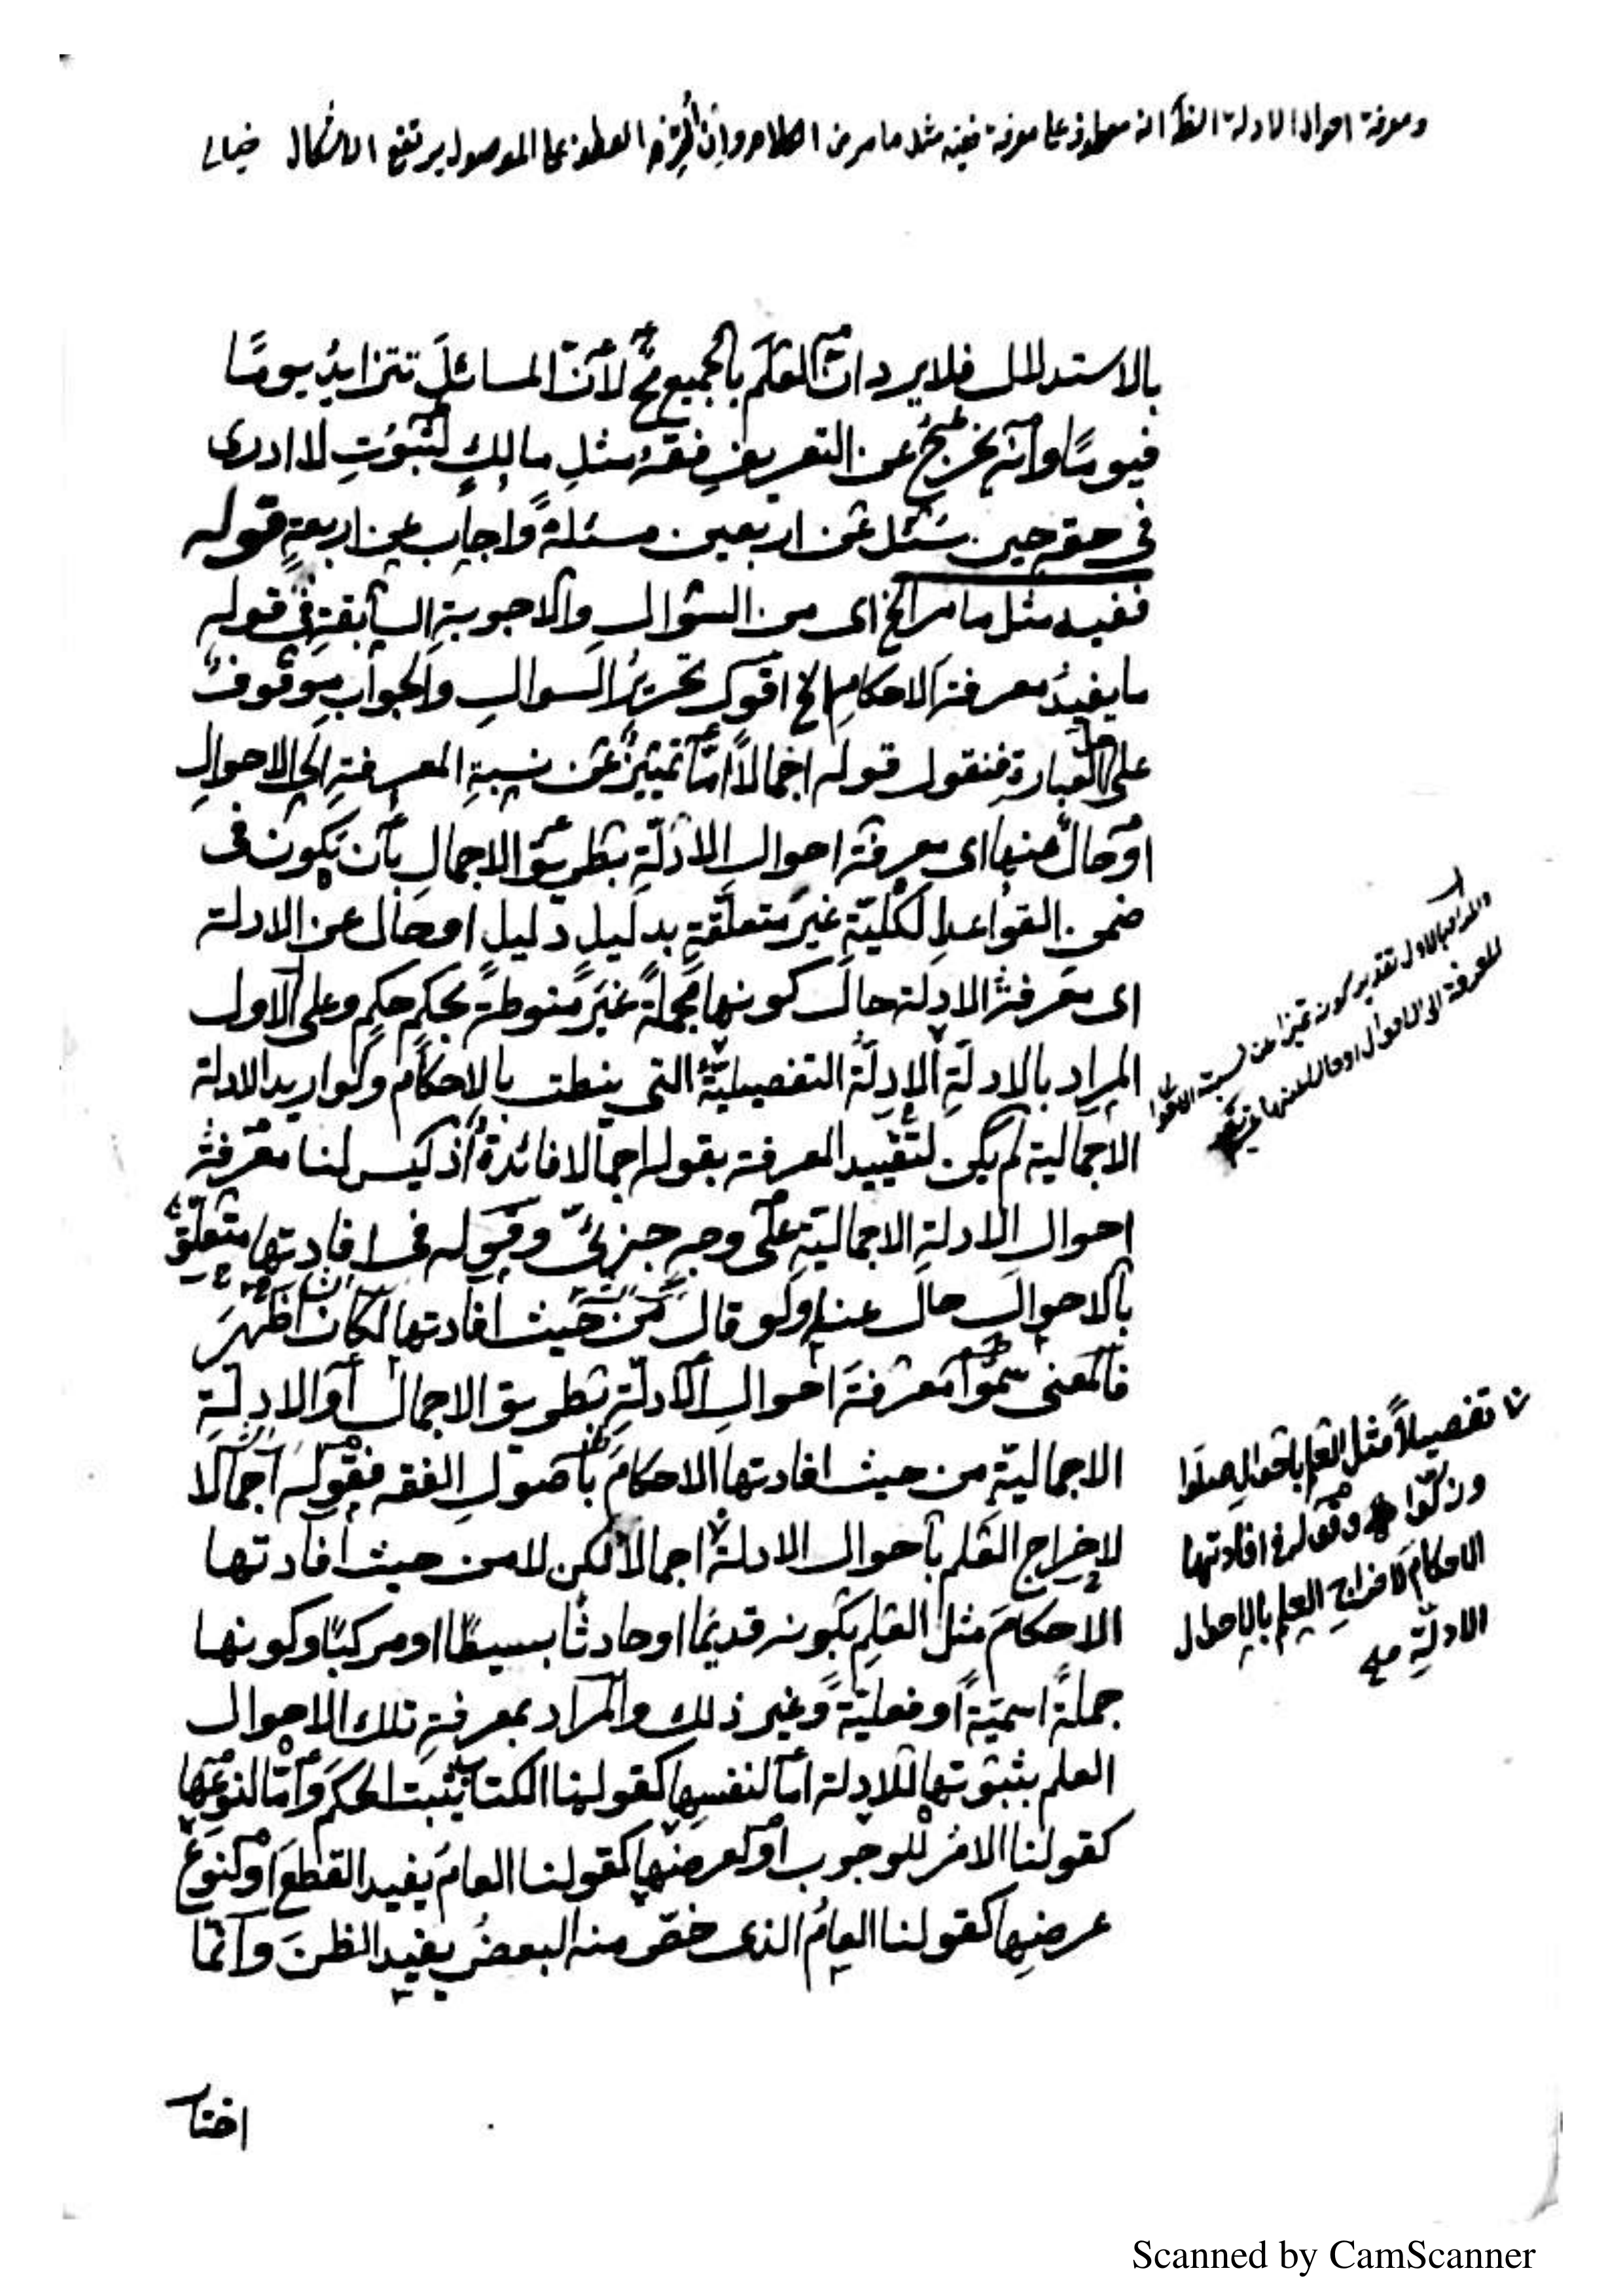 ومعرفة احوال الادلة الظ انه معطوف على معرفة ففيه مثل ما مر من الكلام وان التزم العطف على الموصول يرتفع الاشكال خيالى
بالاستدلال فلا يرد ان العلم بالجميع مح لان المسائل تتزايد يومًا
فيومًا وانه يخرج عن التعريف فقه مثل مالك لثبوت لا ادرى
فى حقه حين سئل عن اربعين مسئلة واجاب عن اربعة قوله
ففيه مثل ما مر الخ اى من السؤال والاجوبة السابقة فى قوله
ما يفيد معرفة الاحكام الخ اقول تحرير السوال والجواب موقوف
على حل العبارة فنقول قوله اجمالاً امّا تمييز عن نسبة المعرفة الى الاحوال
او حال عنها اى معرفة احوال الادلّة بطريق الاجمال بان يكون فى
ضمن القواعد الكليّة غير متعلّقة بدليل دليل او حال عن الادلة
اى معرفة الادلة حال كونها مجملةً غير منوطة بحكم حكم وعلى الاول
المراد بالادلة الادلّة التفصيليّة التى ينطت بالاحكام ولو اريد الادلة
الاجمالية لم يكن لتقييد المعرفة بقوله اجمالا فائدة اذ ليس لنا معرفة
احوال الادلة الاجماليّة على وجه جزئىّ وقوله فى افادتها متعلّق
بالاحوال حال عنها ولو قال من حيث افادتها لكان اظهر
فالمعنى سمّوا معرفة احوال الادلّة بطريق الاجمال او الادلّة
الاجماليّة من حيث افادتها الاحكام باصول الفقه فقوله اجمالا
لاخراج العلم باحوال الادلة اجمالا لكن لا من حيث افادتها
الاحكام مثل العلم بكونه قديمًا او حادثًا بسيطًا او مركبًا وكونها
جملةً اسميّةً او فعليّةً وغير ذلك والمراد بمعرفة تلك الاحوال
العلم بثبوتها للادلة امّا لنفسها كقولنا الكتاب يثبت الحكم وامّا لنوعها
كقولنا الامر للوجوب او لعرضها كقولنا العام يفيد القطع او لنوع
عرضها كقولنا العام الذى خصّ منه البعض يفيد الظن وانّما
بالاول تقدير كونه تميزا عن نسبة
المعرفة الى الاحوال او حالا عنها
تفصيلاً مثل العلم باحوال صلوا
وزكّوا وقوله فى افادتها
الاحكام لاخراج العلم بالاحوال
الادلّة
اختار
Scanned by CamScanner